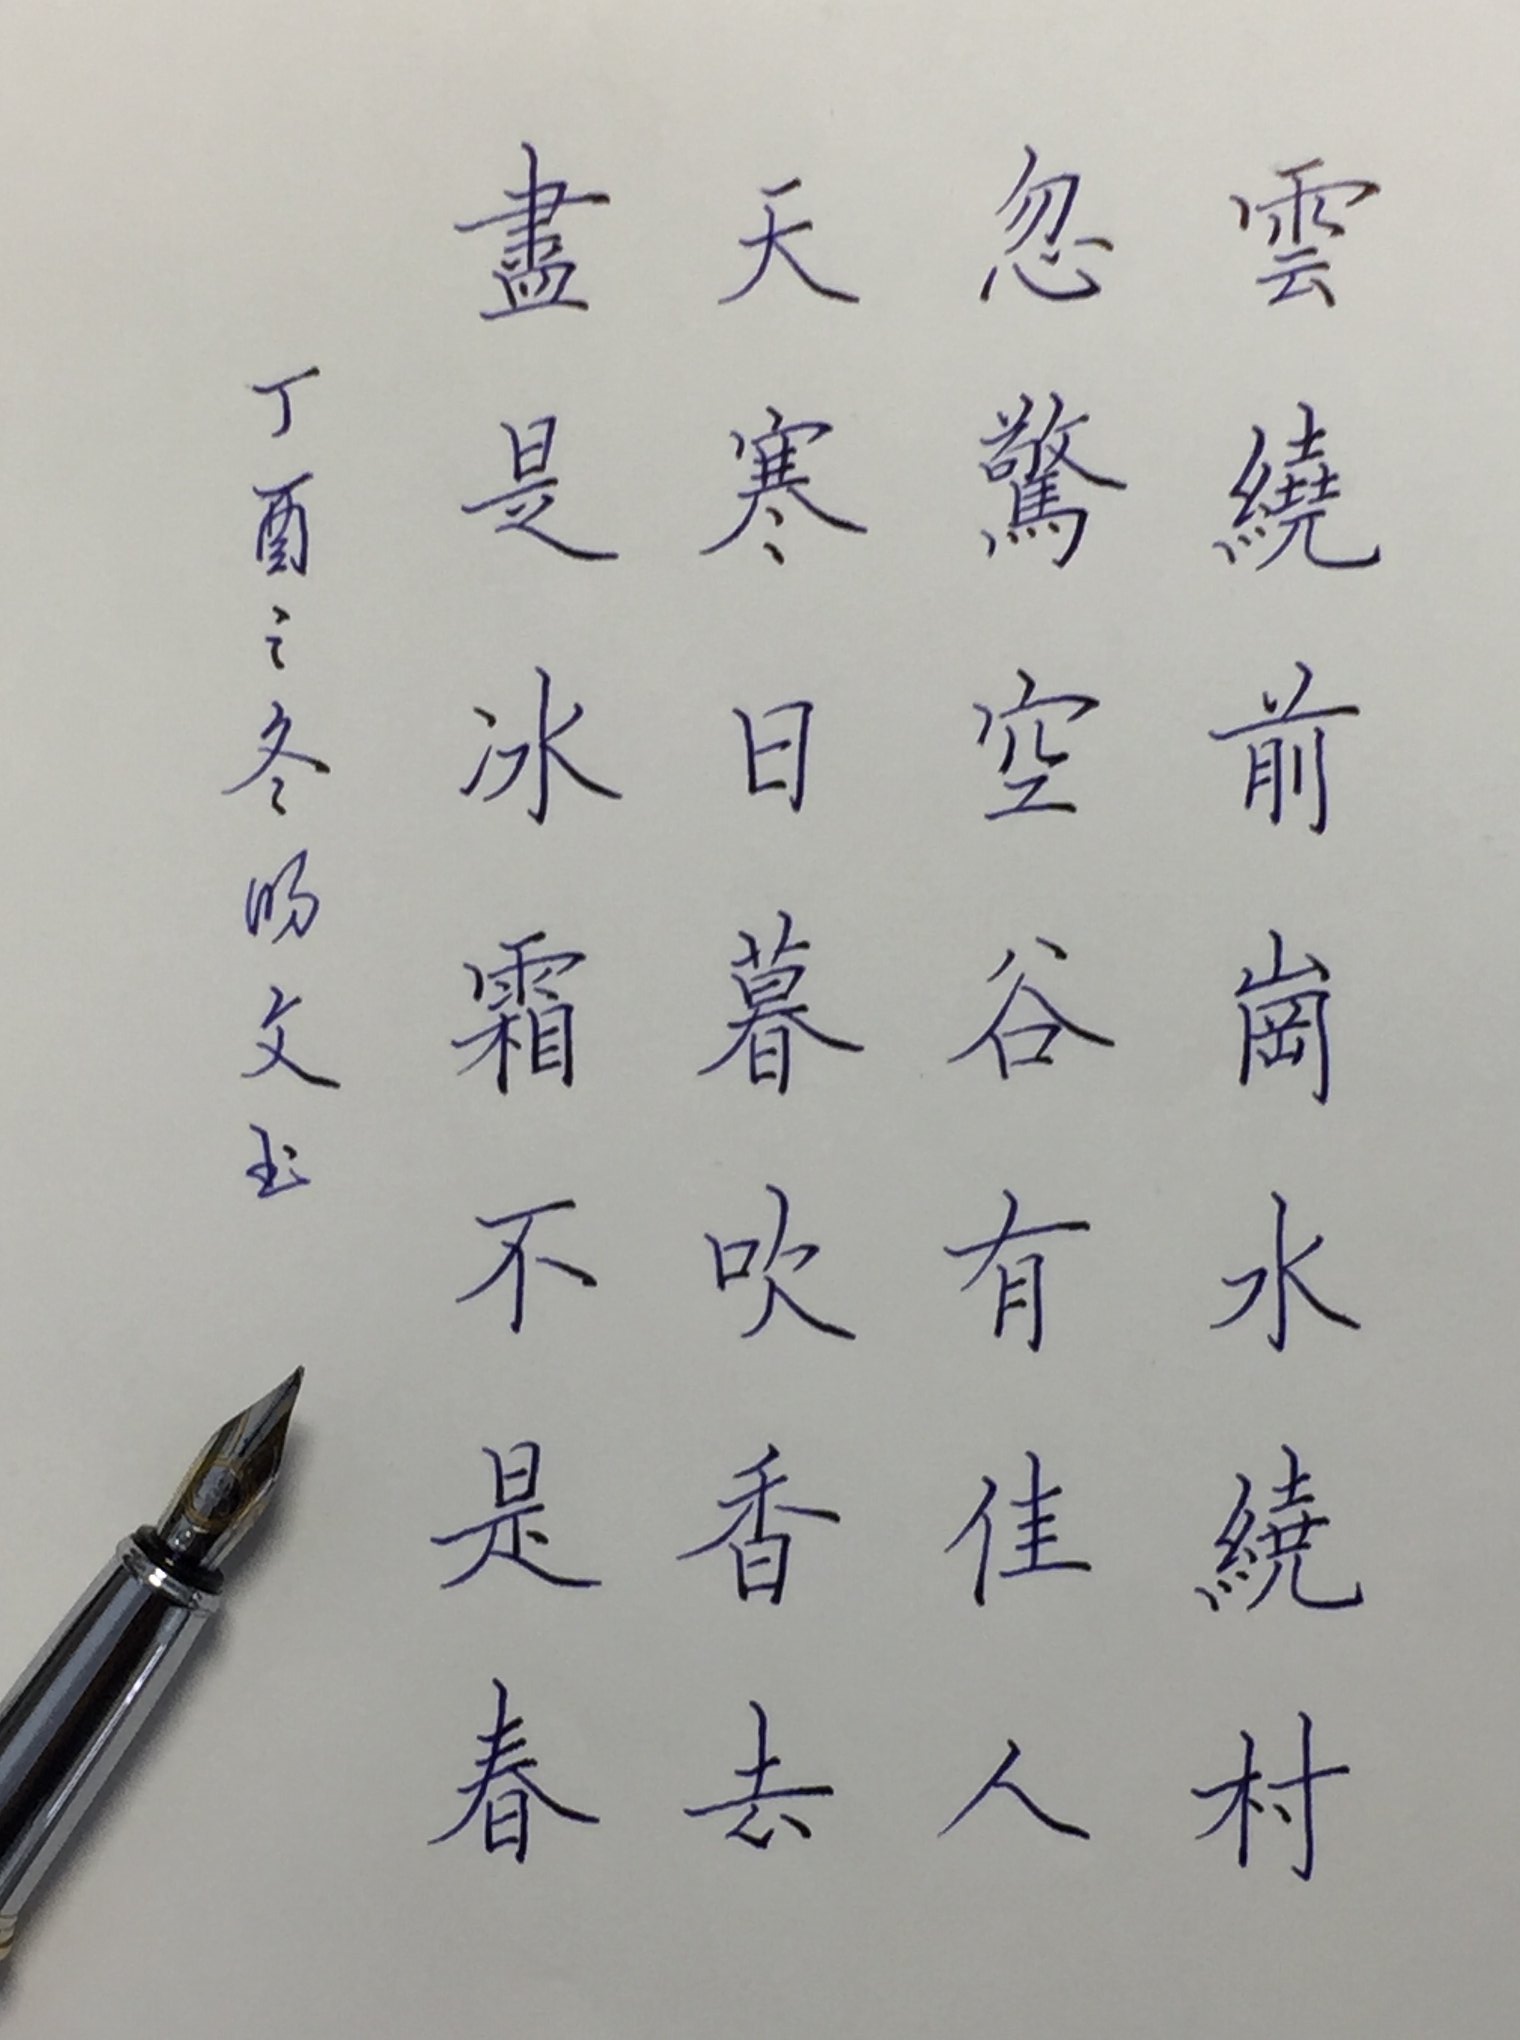 雲繞前崗水繞村
忽驚空谷有佳人
天寒日暮吹香去
盡是冰霜不是春
丁酉之冬旸文书